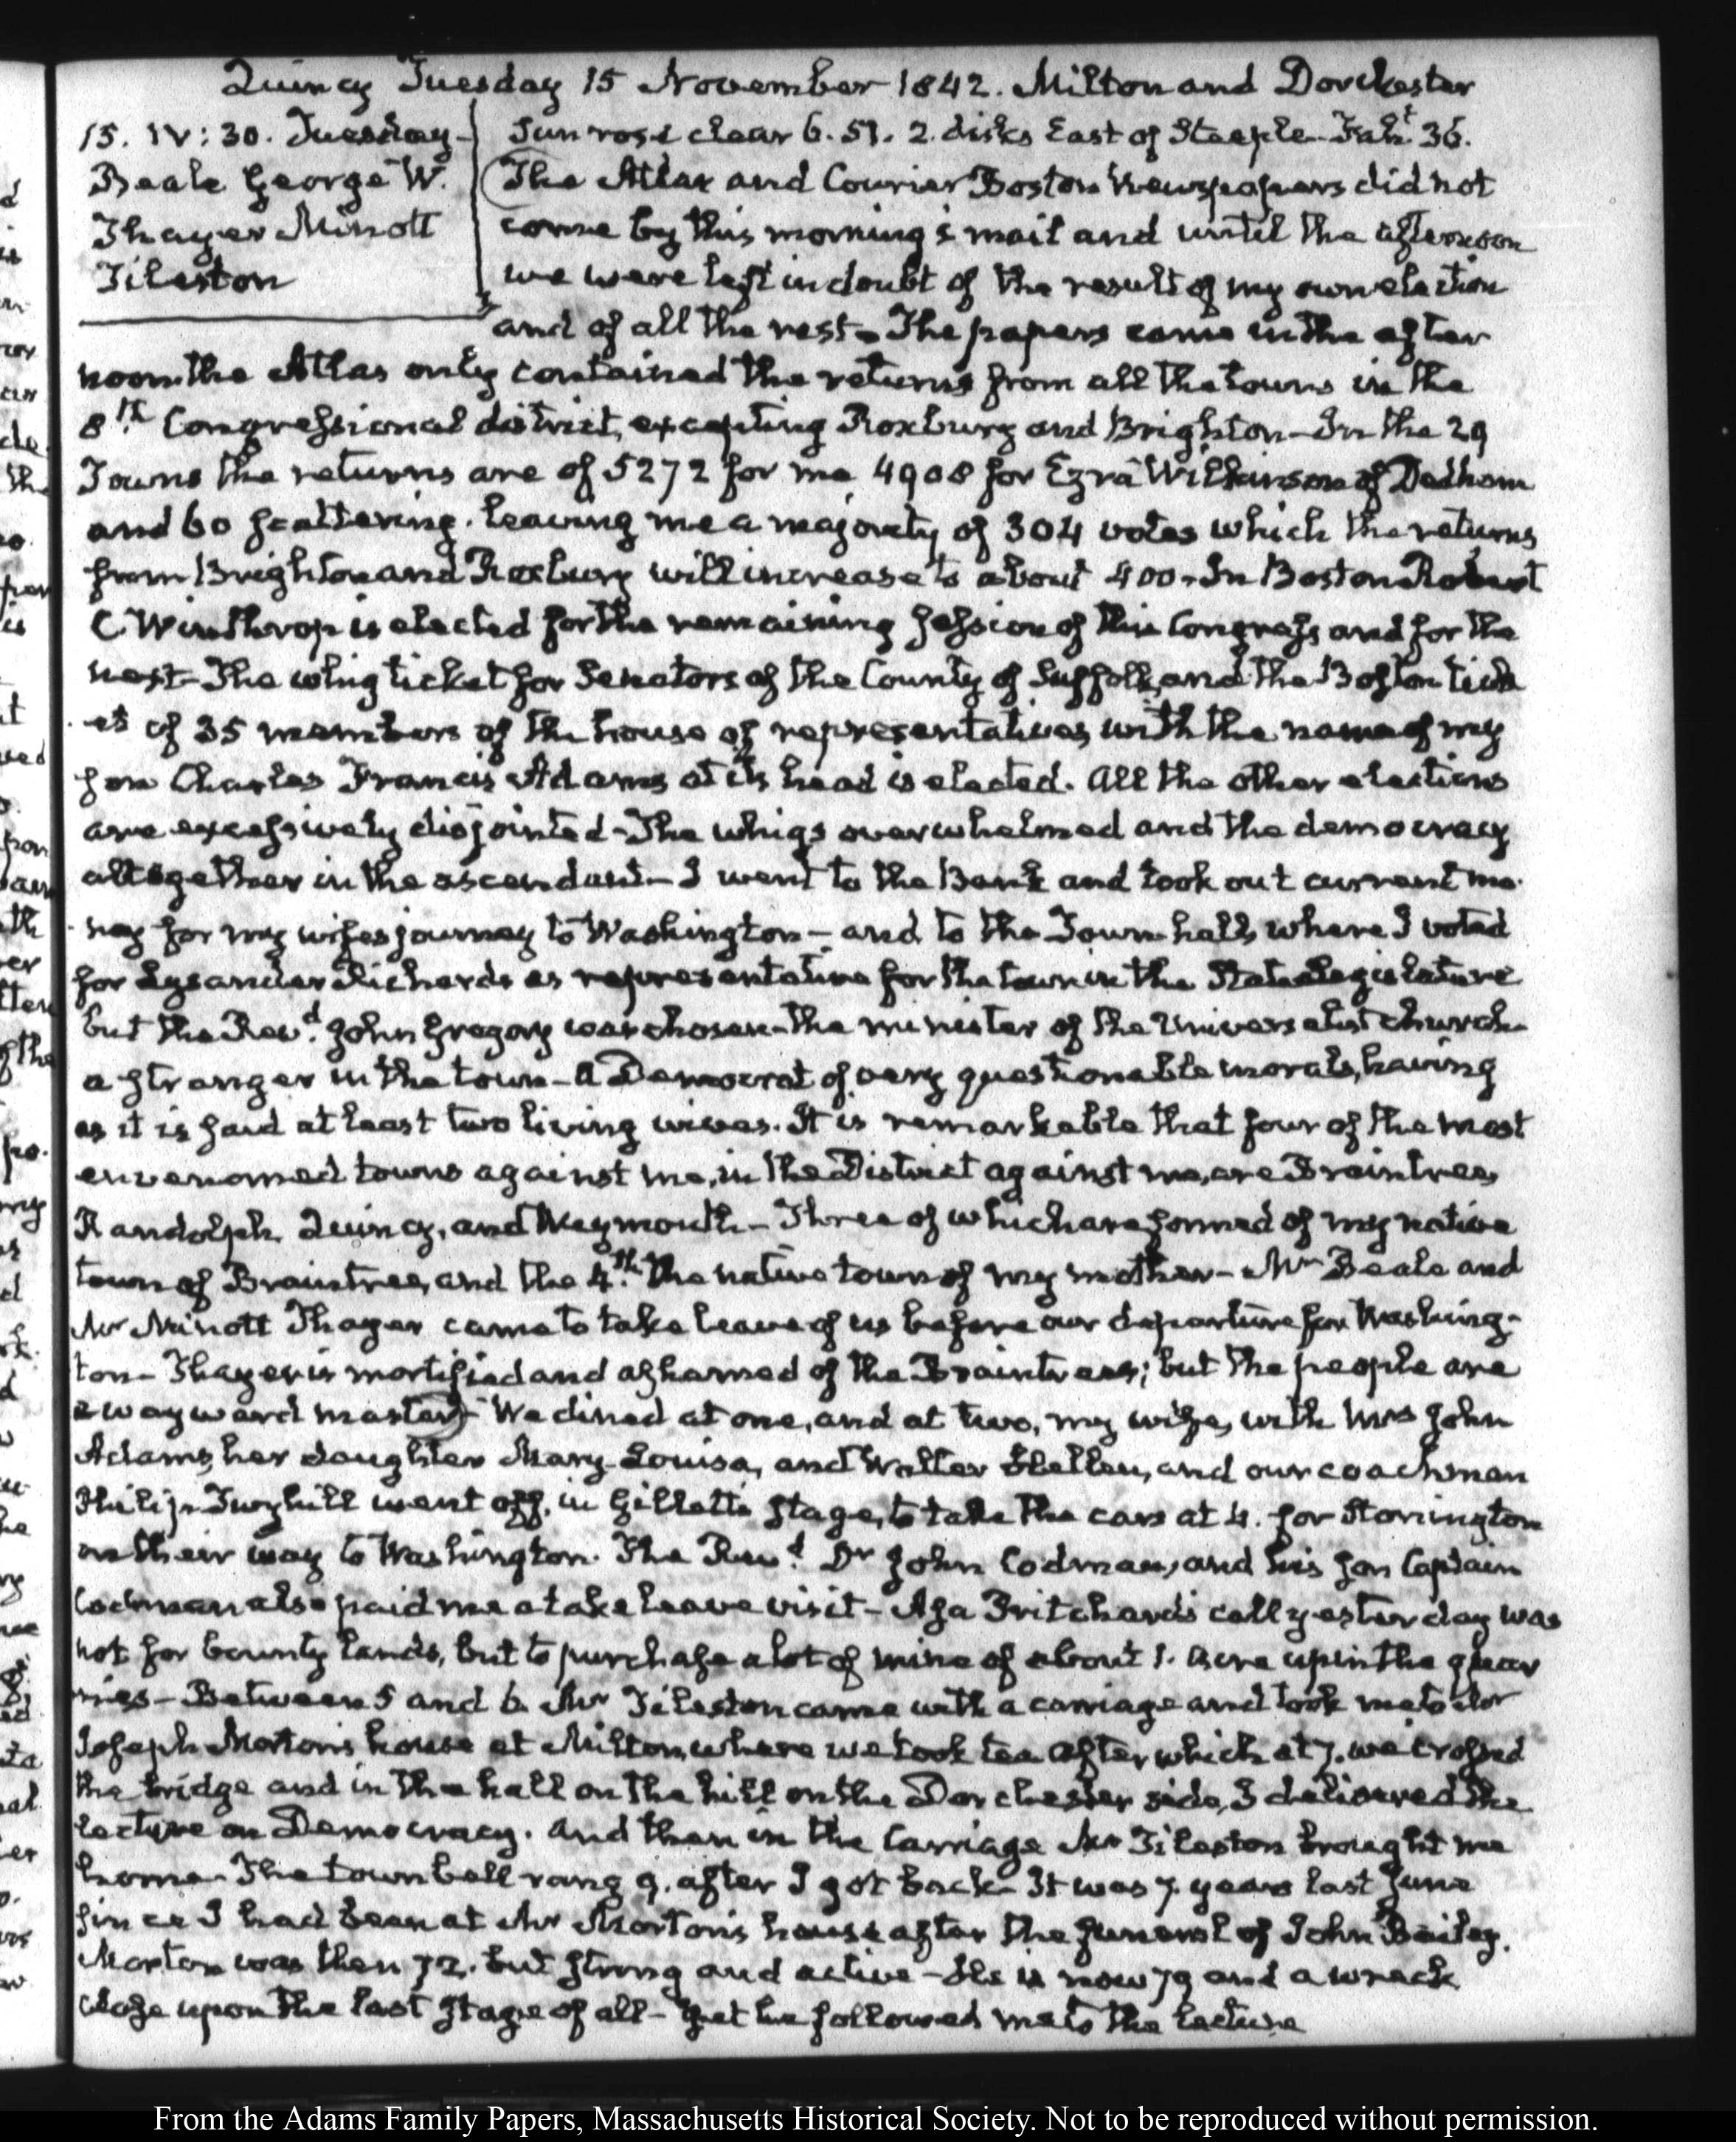 Quincy Tuesday 15 November 1842. Milton and Dorchester
15. IV:30. Tuesday-
Beale George W.
Thayer Minott
Tileston
Sun rose clear 6.51. 2. disks East of Steeple Faht 36.
The Atlas and Courier Boston Newspapers did not
come by this morning's mail and until the afternoon
we were left in doubt of the result of my own election
and of all the rest. The papers came in the after
noon. the Atlas only contained the returns from all the towns in the
8th Congressional district, excepting Roxbury and Brighton - In the 29
Towns the returns are of 5272 for me 4908 for Ezra Wilkinson of Dedham
and 60 scattering. leaving me a majority of 304 votes which the returns
from Brighton and Roxbury will increase to about 400 - In Boston Robert
C Winthrop is elected for the remaining session of this Congress and for the
next - The whig ticket for Senators of the County of Suffolk, and the Boston tick
et of 35 members of the house of representatives with the name of my
son Charles Francis Adams at its head is elected. All the other elections
are excessively disjointed - The whigs overwhelmed and the democracy
altogether in the ascendant - I went to the Bank and took out current mo-
ney for my wife's journey to Washington - and to the Town hall, where I voted
for Lysander Richards as representative for the town in the State Legislature
but the Revd. John Gregory was chosen - the minister of the Universalist church
a stranger in the town - a Democrat of very questionable morals, having
as it is said at least two living wives. It is remarkable that four of the most
envenomed towns against me, in the District against me, are Braintree,
Randolph. Quincy, and Weymouth - Three of which are formed of my native
town of Braintree, and the 4th. the native town of my mother - Mr Beale and
Mr Minott Thayer came to take leave of us before our departure for Washing-
ton - Thayer is mortified and ashamed of the Braintrees; but the people are
a wayward master - We dined at one, and at two, my wife, with Mrs John
Adams, her daughter Mary-Louisa, and Walter Hellen, and our coachman
Philip Twyhill went off, in Gillett's stage, to take the cars at 4. for Stonington
on their way to Washington. The Revd. Dr John Codman, and his son Captain
Codman also paid me a take leave visit - Asa Pritchard's call yesterday was
not for bounty lands, but to purchase a lot of mine of about 1. acre up in the quar
ries - Between 5 and 6. Mr Tileston came with a carriage and took me to Mr
Joseph Morton's house at Milton, where we took tea after which at 7. we crossed
the bridge and in the hall on the hill on the Dorchester side, I delivered the
lecture on Democracy. and then in the Carriage Mr Tileston brought me
home - The town bell rang 9. after I got back - It was 7. years last June
since I had been at Mr Morton's house after the funeral of John Bailey.
Morton was then 72. but strong and active - He is now 79 and a wreck
close upon the last stage of all - yet he followed me to the lecture
From the Adams Family Papers, Massachusetts Historical Society. Not to be reproduced without permission.